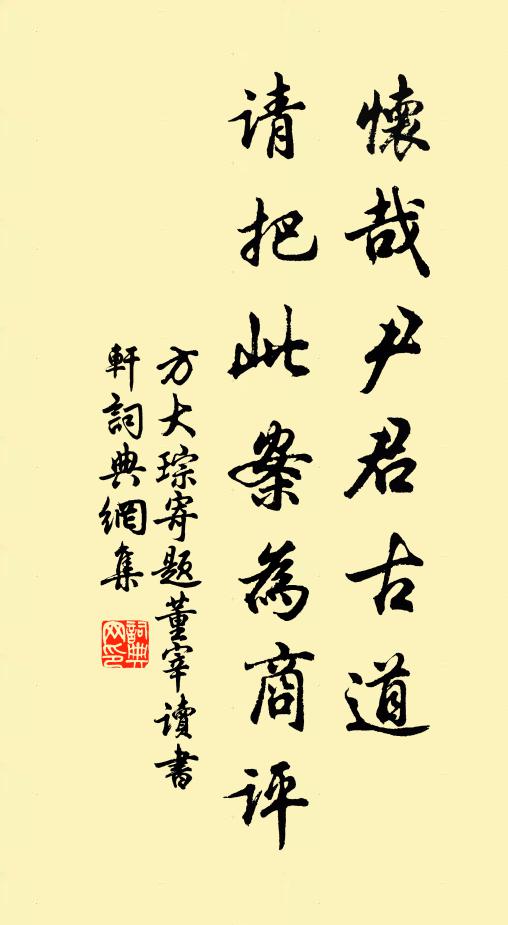 懷哉尹君古道
请把此案為商评
方大琮寄题董宰讀書
軒詞典網集
詞典
网印